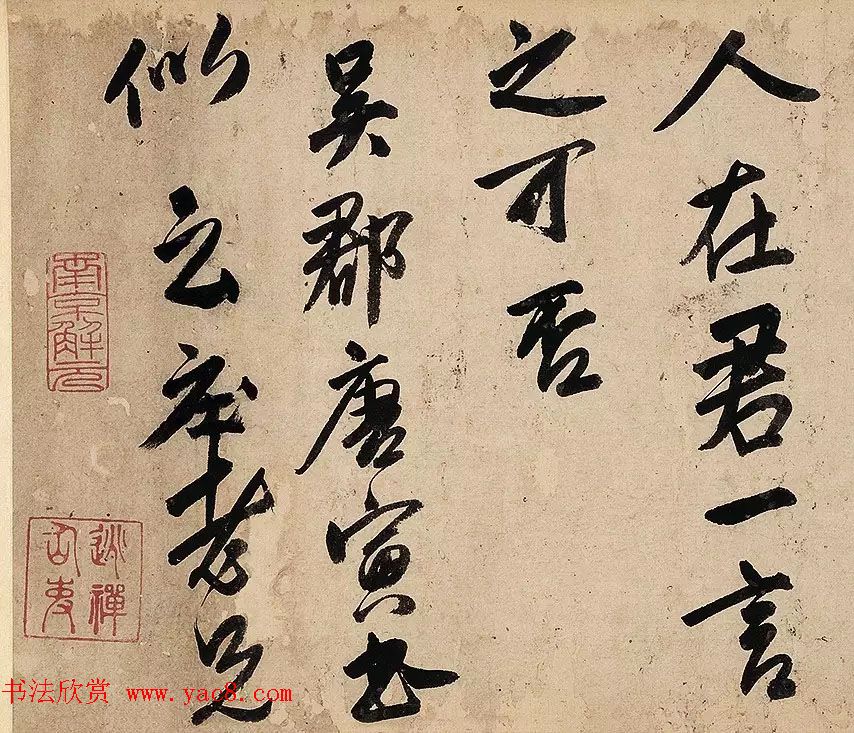 人在君一言
之可否
吴郡唐寅书
似云庄老兄
南京解元
逃禅仙吏
书法欣赏 www.yac8.com